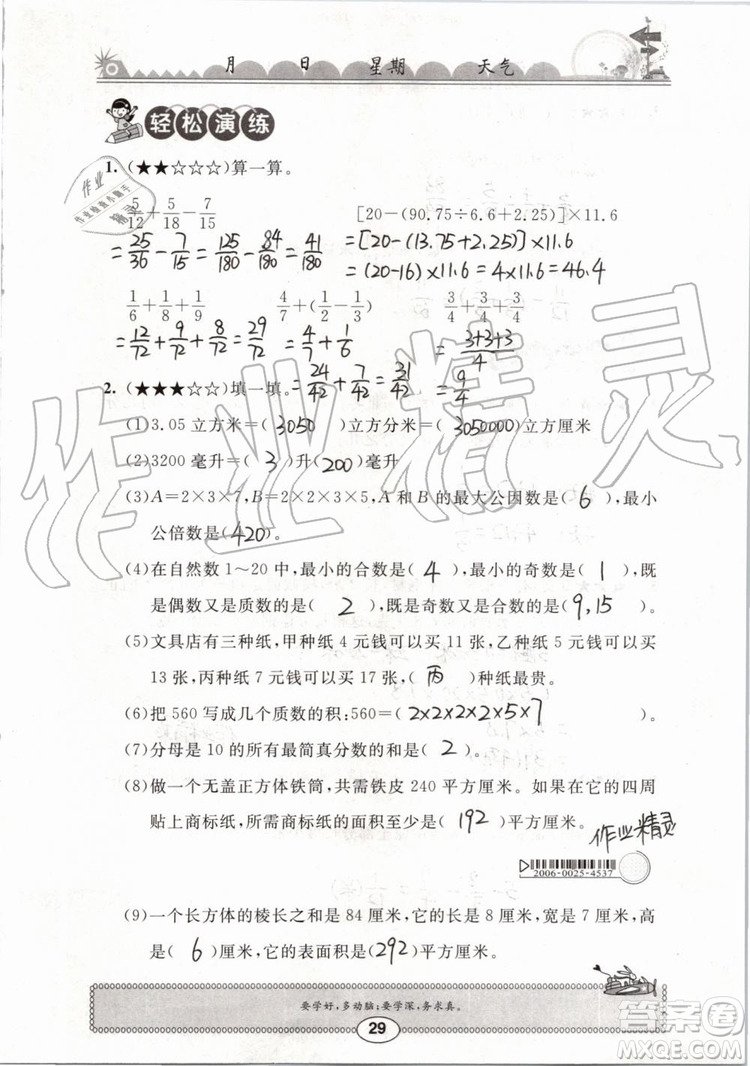 月 日 星期 天气
轻松演练
作业
作业检查小助手
精灵
1. (★★☆☆☆)算一算。
5/12+5/18-7/15 [20-(90.75÷6.6+2.25)]×11.6
=25/36-7/15=125/180-84/180=41/180 =[20-(13.75+2.25)]×11.6
=(20-16)×11.6=4×11.6=46.4
1/6+1/8+1/9 4/7+(1/2-1/3) 3/4+3/4+3/4
=12/72+9/72+8/72=29/72 =4/7+1/6 =(3+3+3)/4
=24/42+7/42=31/42 =9/4
2. (★★★☆☆)填一填。
(1)3.05 立方米=(3050)立方分米=(3050000)立方厘米
(2)3200 毫升=(3)升(200)毫升
(3)A=2×3×7,B=2×2×3×5,A 和 B 的最大公因数是(6),最小
公倍数是(420)。
(4)在自然数 1~20 中,最小的合数是(4),最小的奇数是(1),既
是偶数又是质数的是(2),既是奇数又是合数的是(9,15)。
(5)文具店有三种纸,甲种纸 4 元钱可以买 11 张,乙种纸 5 元钱可以买
13 张,丙种纸 7 元钱可以买 17 张,(丙)种纸最贵。
(6)把 560 写成几个质数的积:560=(2×2×2×2×5×7)。
(7)分母是 10 的所有最简真分数的和是(2)。
(8)做一个无盖正方体铁筒,共需铁皮 240 平方厘米。如果在它的四周
贴上商标纸,所需商标纸的面积至少是(192)平方厘米。
作业精灵
2006-0025-4537
(9)一个长方体的棱长之和是 84 厘米,它的长是 8 厘米,宽是 7 厘米,高
是(6)厘米,它的表面积是(292)平方厘米。
要学好,多动脑;要学深,务求真。
29
作业精灵
答案圈
MXQE.COM